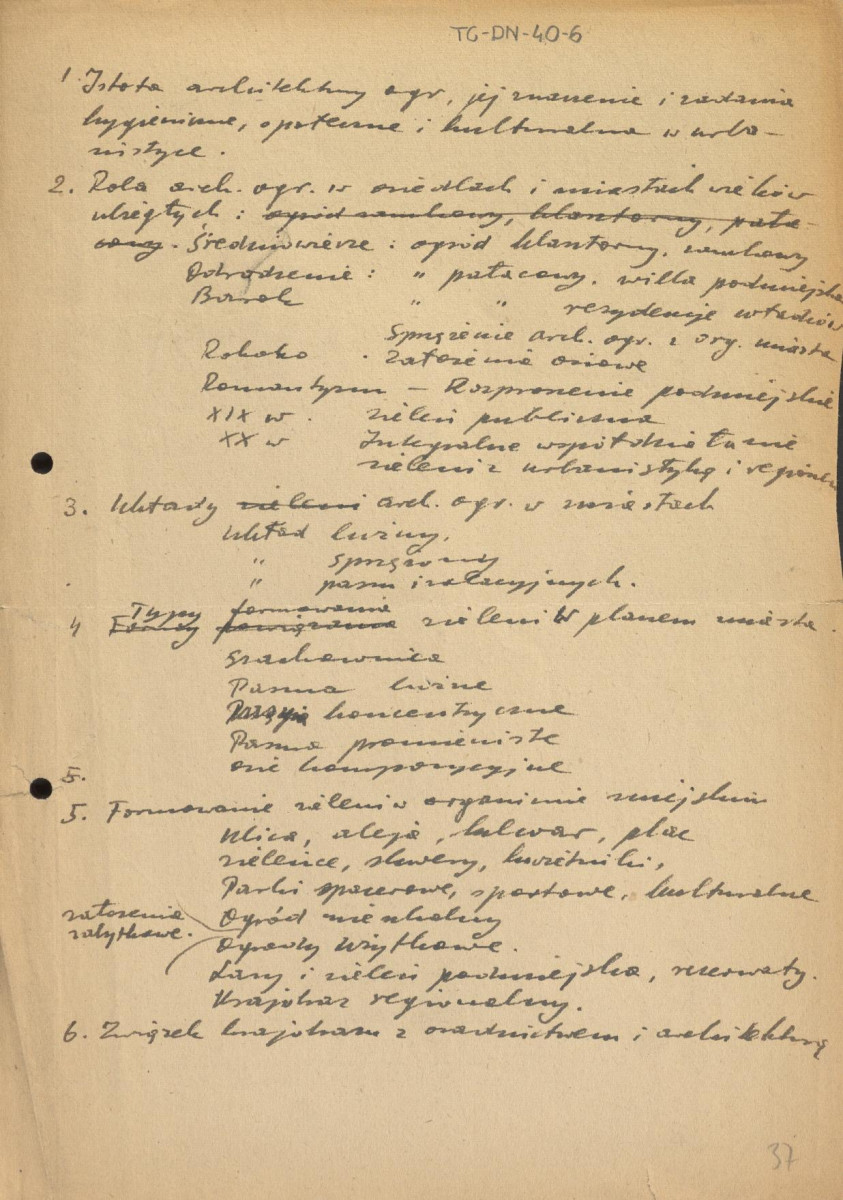 TG-DN-40-6
1. Istota architektury ogr, jej znaczenie i zadania
hygieniczne, społeczne i kulturalne w urba-
nistyce.
2. Rola arch. ogr. w osiedlach i miastach wieków
ubiegłych : ogród zamkowy, klasztorny, pała-
cowy. Średniowiecze : ogród klasztorny, zamkowy
Odrodzenie : " pałacowy, willa podmiejska
Barok " " rezydencje władców
Sprzężenie arch. ogr. z org. miasta
Rokoko . Założenia osiowe
Romantyzm — Rozproszenie podmiejskie
XIX w . zieleń publiczna
XX w Integralne współdziałanie
zieleni z urbanistyką i regionem
3. Układy zieleni arch. ogr. w miastach
Układ luźny,
" sprzężony
" pasm izolacyjnych.
Typy formowania
4 Formy powiązania zieleni w planem miasta.
Szachownica
Pasma luźne
koncentryczne
Pasma promieniste
osie kompozycyjne
5.
5. Formowanie zieleni w organizmie miejskim
Ulica, aleja, bulwar, plac
zieleńce, skwery, kwietniki,
Parki spacerowe, sportowe, kulturalne
założenia Ogród
zabytkowe. Ogrody użytkowe.
Lasy i zieleń podmiejska, rezerwaty.
Krajobraz regionalny.
6. Związek krajobrazu z osadnictwem i architekturą
37